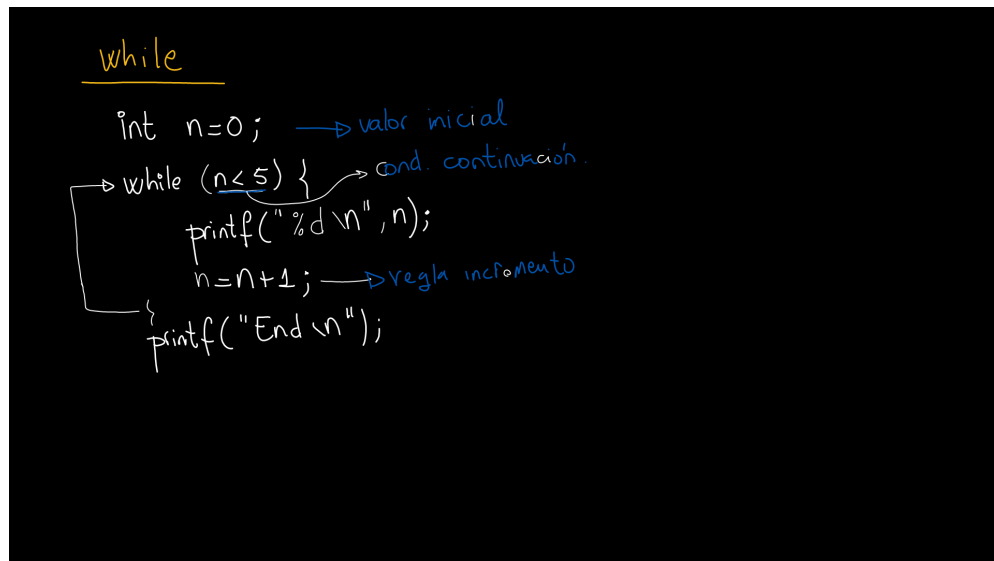 while
int n=0; valor inicial
while (n<5) { cond. continuación.
printf("%d \n", n);
n=n+1; regla incremento
}
printf("End \n");